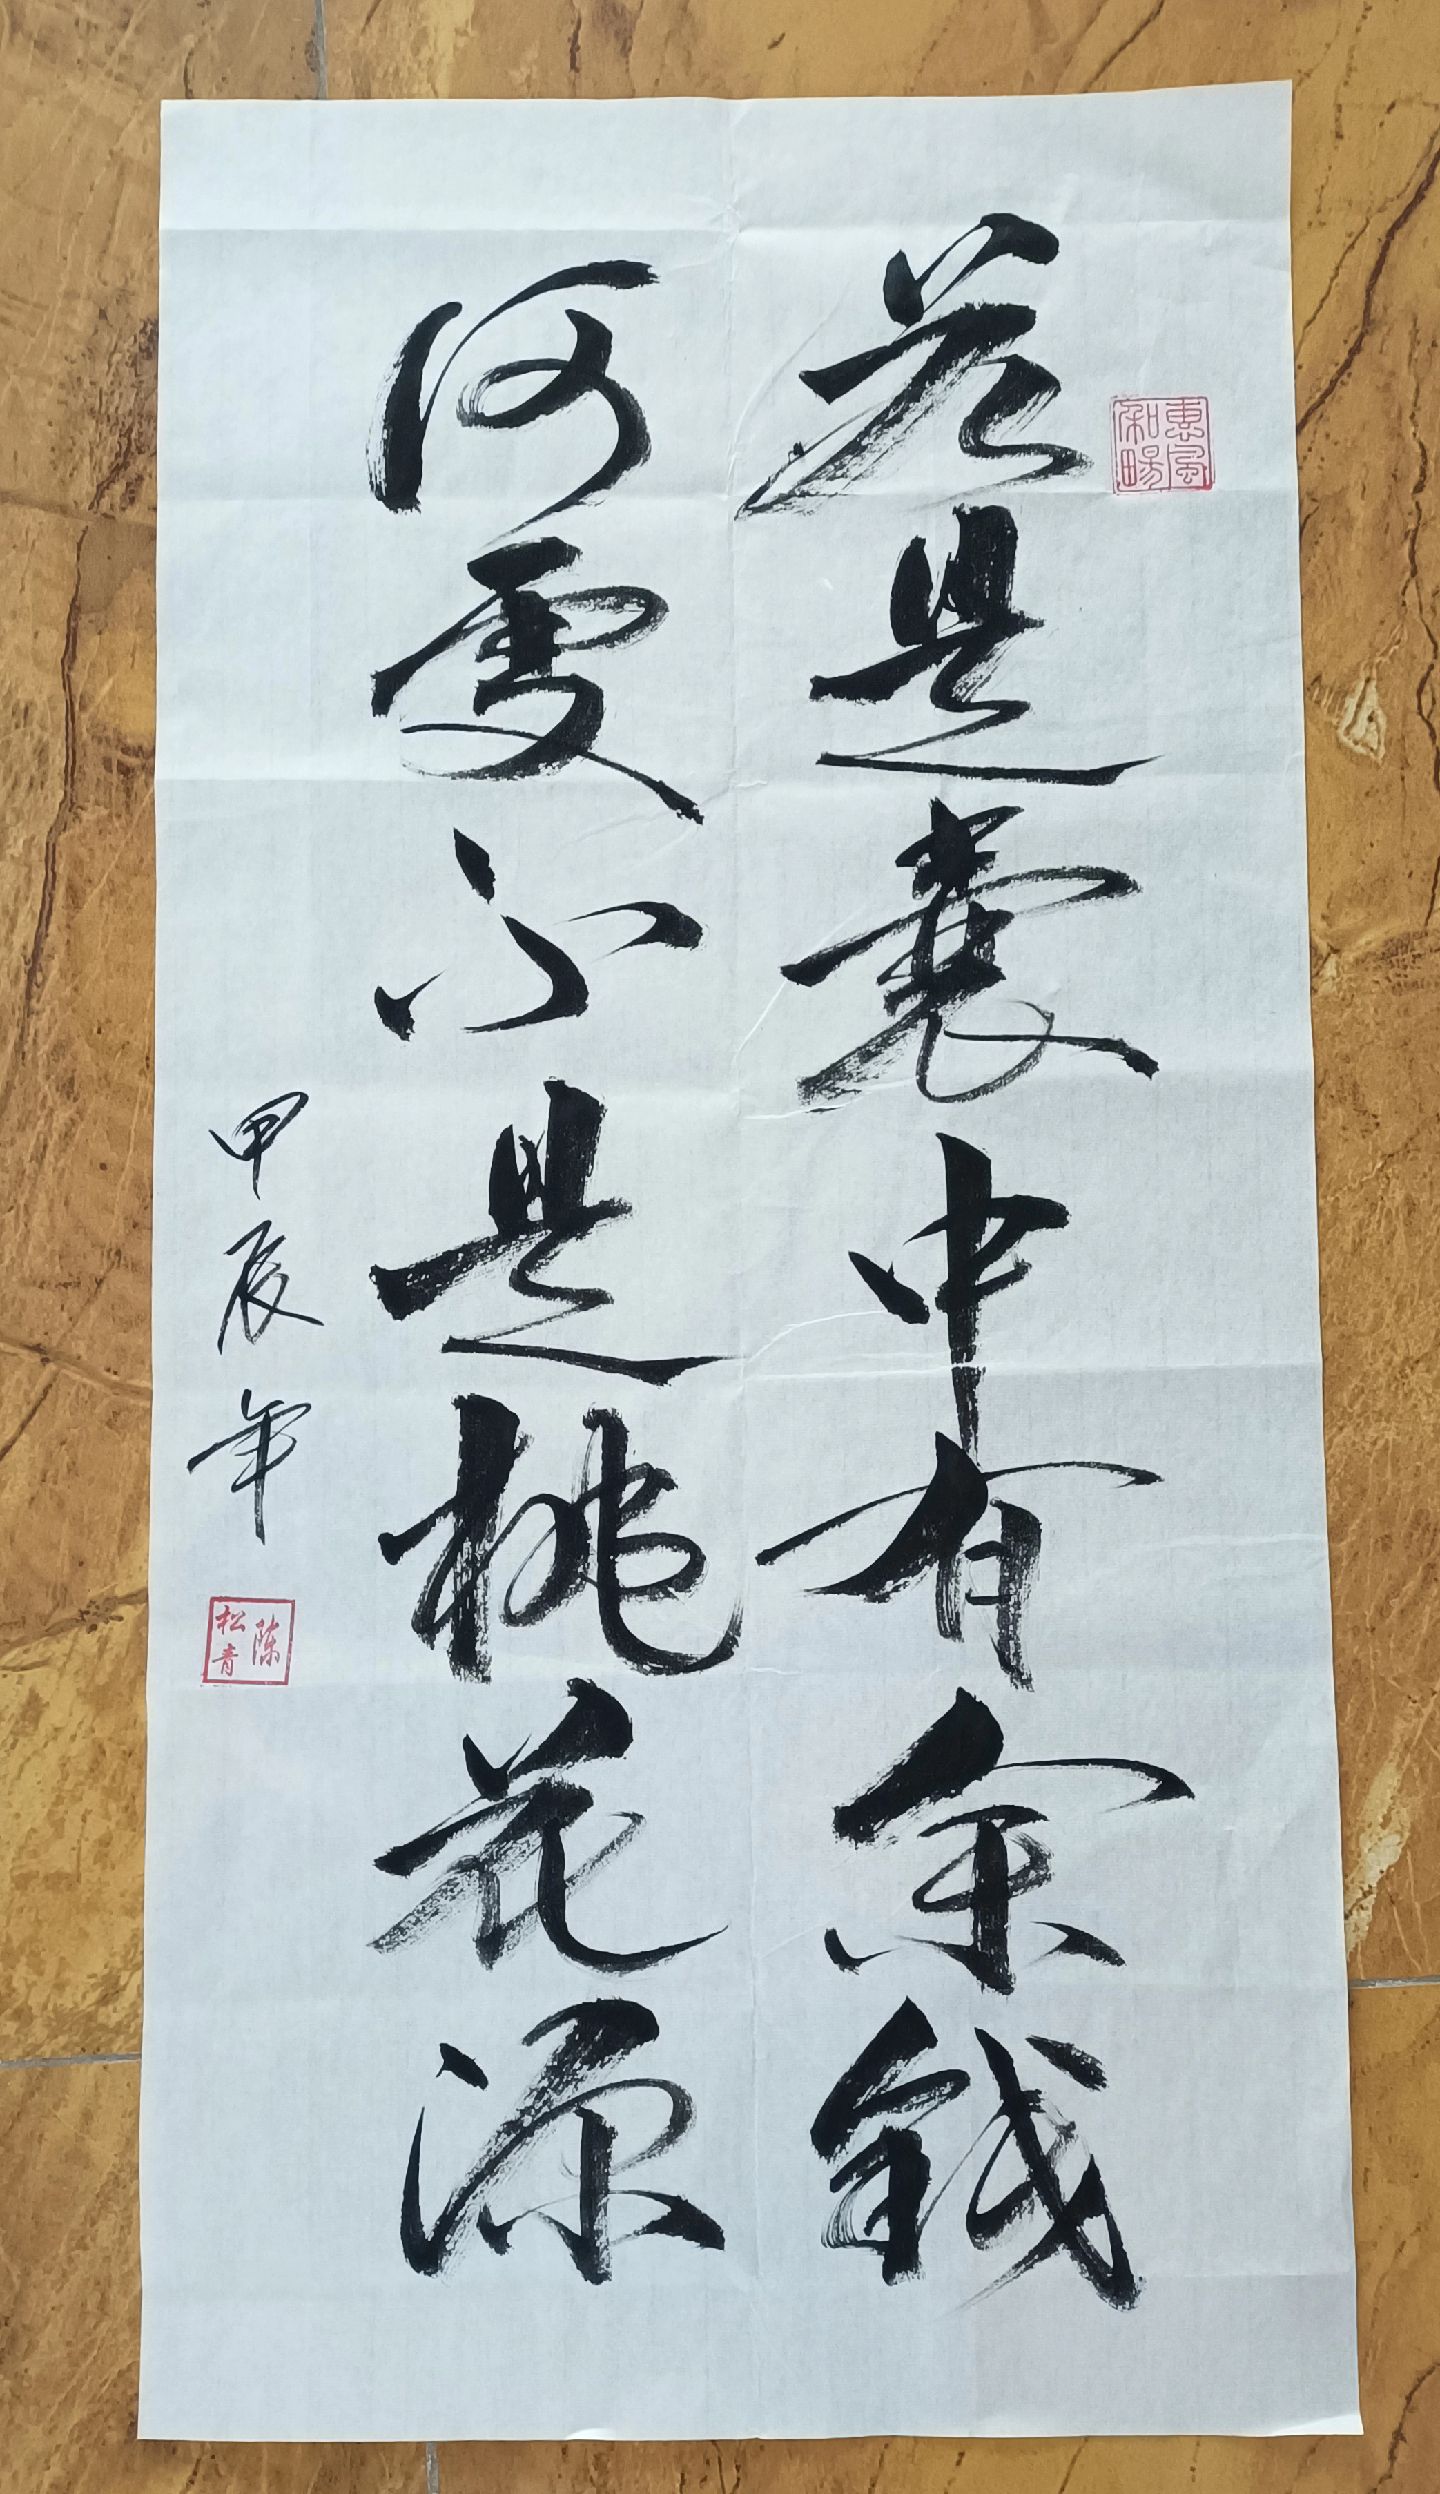 惠风和畅
若是囊中有余钱
何处不是桃花源
甲辰年
陈松青